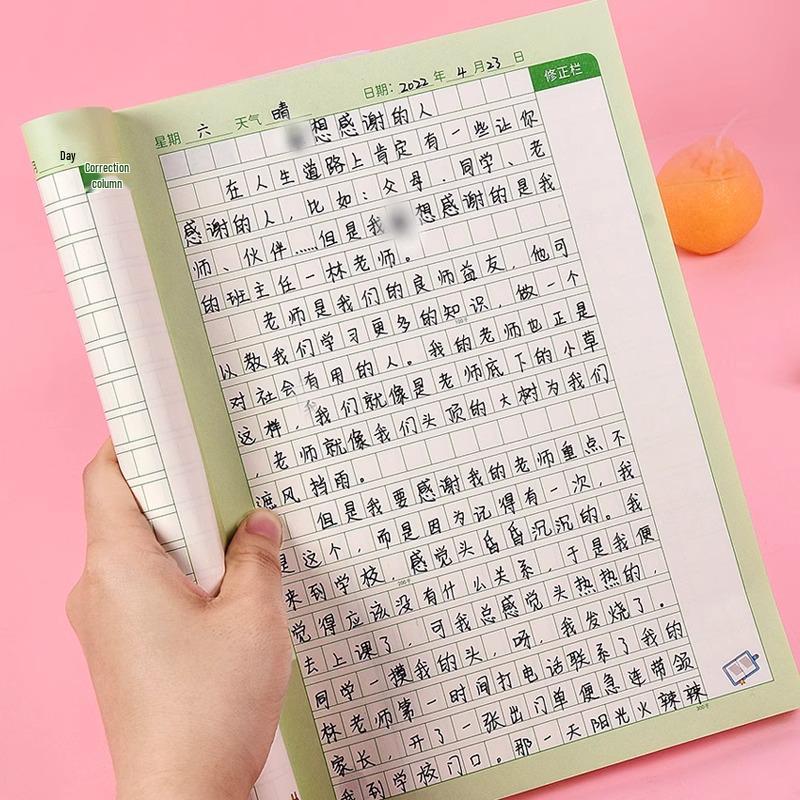 月
Day
Correction
column
星期 六 天气 晴 日期: 2022 年 4 月 23 日
修正栏
想感谢的人
在人生道路上肯定有一些让你
感谢的人,比如:父母、同学、老
师、伙伴……但是我 想感谢的是我
的班主任一林老师。
老师是我们的良师益友,他可
以教我们学习更多的知识,做一个
100字
对社会有用的人。我的老师也正是
这样,我们就像是老师底下的小草
,老师就像我们头顶的大树为我们
遮风挡雨。
但是我要感谢我的老师重点不
是这个,而是因为记得有一次,我
来到学校,感觉头昏昏沉沉的。我
200字
觉得应该没有什么关系,于是我便
去上课了,可我总感觉头热热的,
同学一摸我的头,呀,我发烧了。
林老师第一时间打电话联系了我的
家长,开了一张出门单便急连带领
300字
我到学校门口。那一天阳光火辣辣